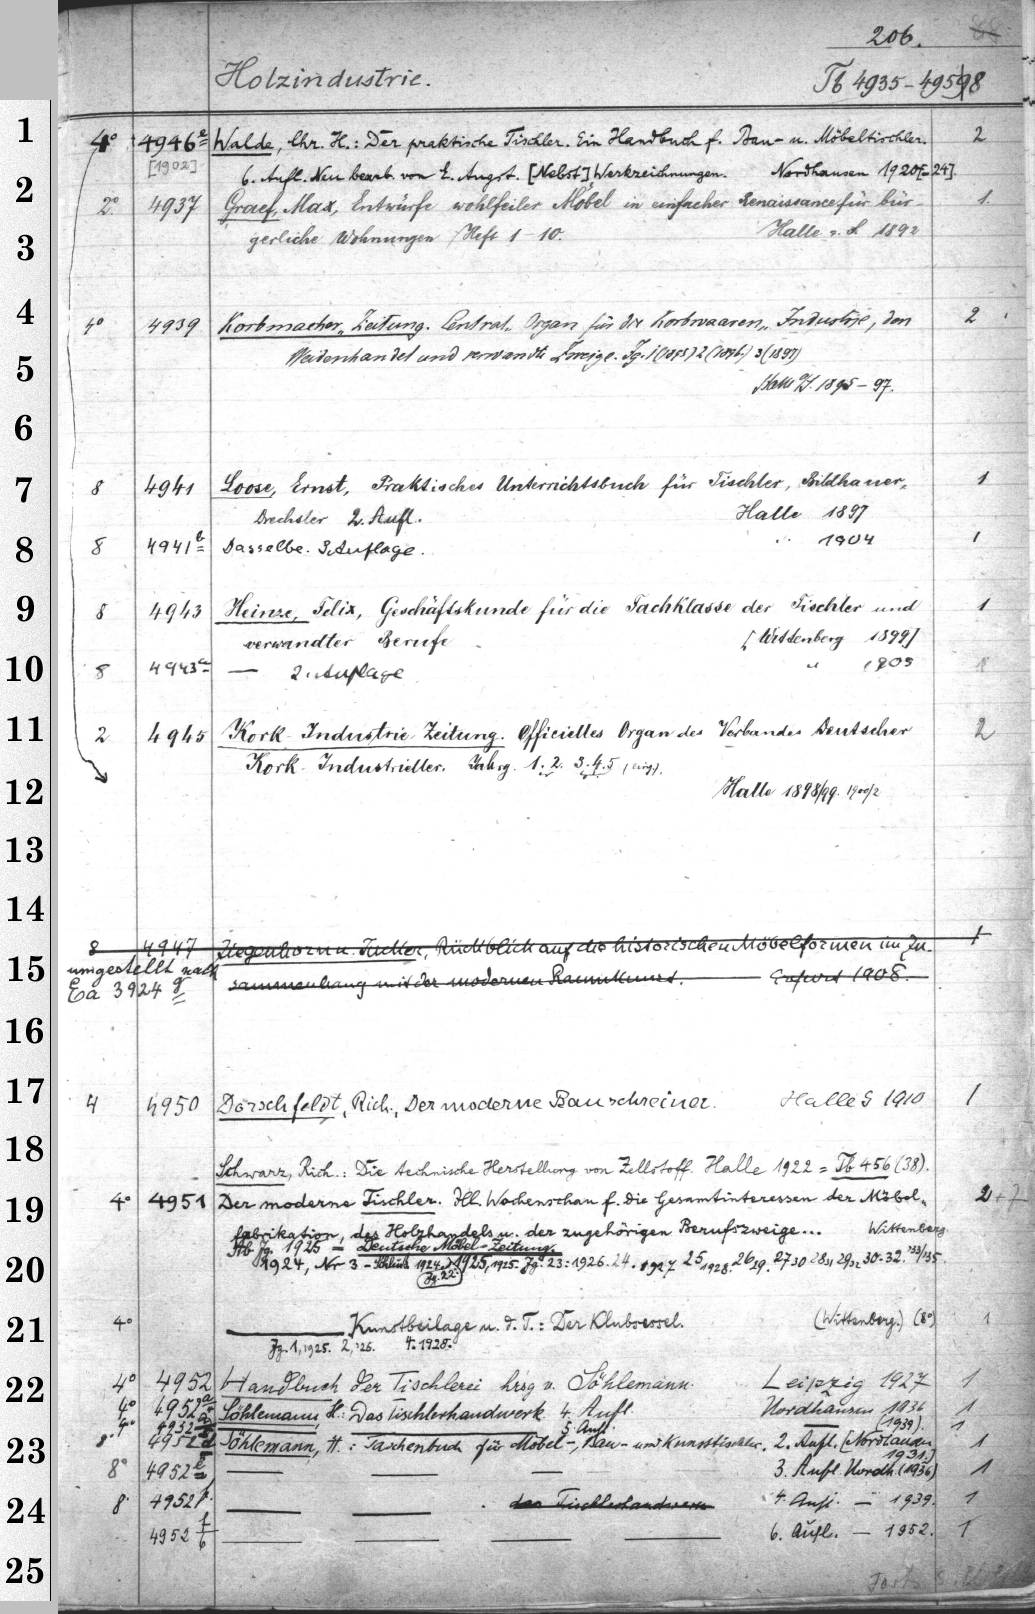 206.
Holzindustrie. Tb 4935-4958
1
4° 4946e Walde, Chr. H.: Der praktische Tischler. Ein Handbuch f. Bau- u. Möbeltischler. 2
[1902] 6. Aufl. Neu bearb. von E. Angst. [Nebst] Werkzeichnungen. Nordhausen 1920[-24].
2
2° 4937 Graef, Max, Entwürfe wohlfeiler Möbel in einfacher Renaissance für bür- 1.
gerliche Wohnungen Heft 1-10. Halle a. S. 1892
3
4
4° 4939 Korbmacher-Zeitung. Central-Organ für die Korbwaaren-Industrie, den 2
Weidenhandel und verwandte Zweige. Jg. 1(1895) 2(1896) 3(1897)
5
Halle a/S. 1895-97.
6
7
8 4941 Loose, Ernst, Praktisches Unterrichtsbuch für Tischler, Bildhauer, 1
Drechsler 2. Aufl. Halle 1897
8
8 4941b Dasselbe. 3. Auflage. " 1904 1
9
8 4943 Heinze, Felix, Geschäftskunde für die Fachklasse der Tischler und 1
verwandter Berufe [Wittenberg 1899]
10
8 4943a — 2. Auflage " 1905 1
11
2 4945 Kork-Industrie-Zeitung. Officielles Organ des Verbandes Deutscher 2
Kork-Industrieller. Jahrg. 1. 2. 3. 4. 5
12
Halle 1898/99. 1900/2
13
14
8 4947 Ziegenhorn u. Jucker, Rückblick auf die historischen Möbelformen im Zu- 1
15
umgestellt nach
sammenhang mit der modernen Raumkunst. Erfurt 1908.
Ea 3924 g
16
17
4 4950 Dorschfeldt, Rich., Der moderne Bauschreiner. Halle S 1910 1
18
Schwarz, Rich.: Die technische Herstellung von Zellstoff. Halle 1922 = Tb 456 (38).
19
4° 4951 Der moderne Tischler. Ill. Wochenschau f. die Gesamtinteressen der Möbel- 2+7
fabrikation, des Holzhandels u. der zugehörigen Berufszweige... Wittenberg
Ab Jg. 1925 = Deutsche Möbel-Zeitung.
20
1924, Nr 3 - Schluß 1924. 1925, 1925. Jg. 23: 1926. 24. 1927 25 1928. 26 29. 27 30 28 31 29/32 30-32. '33/'35.
Jg. 22
21
4° — Kunstbeilage u. d. T.: Der Klubsessel. (Wittenberg.) (8°) 1
Jg. 1, 1925. 2, '26. 4. 1928.
22
4° 4952 Handbuch der Tischlerei hrsg v. Söhlemann. Leipzig 1927 1
4° 4952a Söhlemann, H.: Das Tischlerhandwerk 4. Aufl. Nordhausen 1936 1
4° 4952 — 5. Aufl. — (1939). 1
23
8° 4952d Söhlemann, H.: Taschenbuch für Möbel-, Bau- und Kunsttischler. 2. Aufl. [Nordhausen 1931.] 1
8° 4952e — — — 3. Aufl. Nordh. (1936) 1
24
8° 4952f. — — das Tischlerhandwerk 4. Aufl. — 1939. 1
4952 f/b — — — — 6. Aufl. — 1952. 1
25